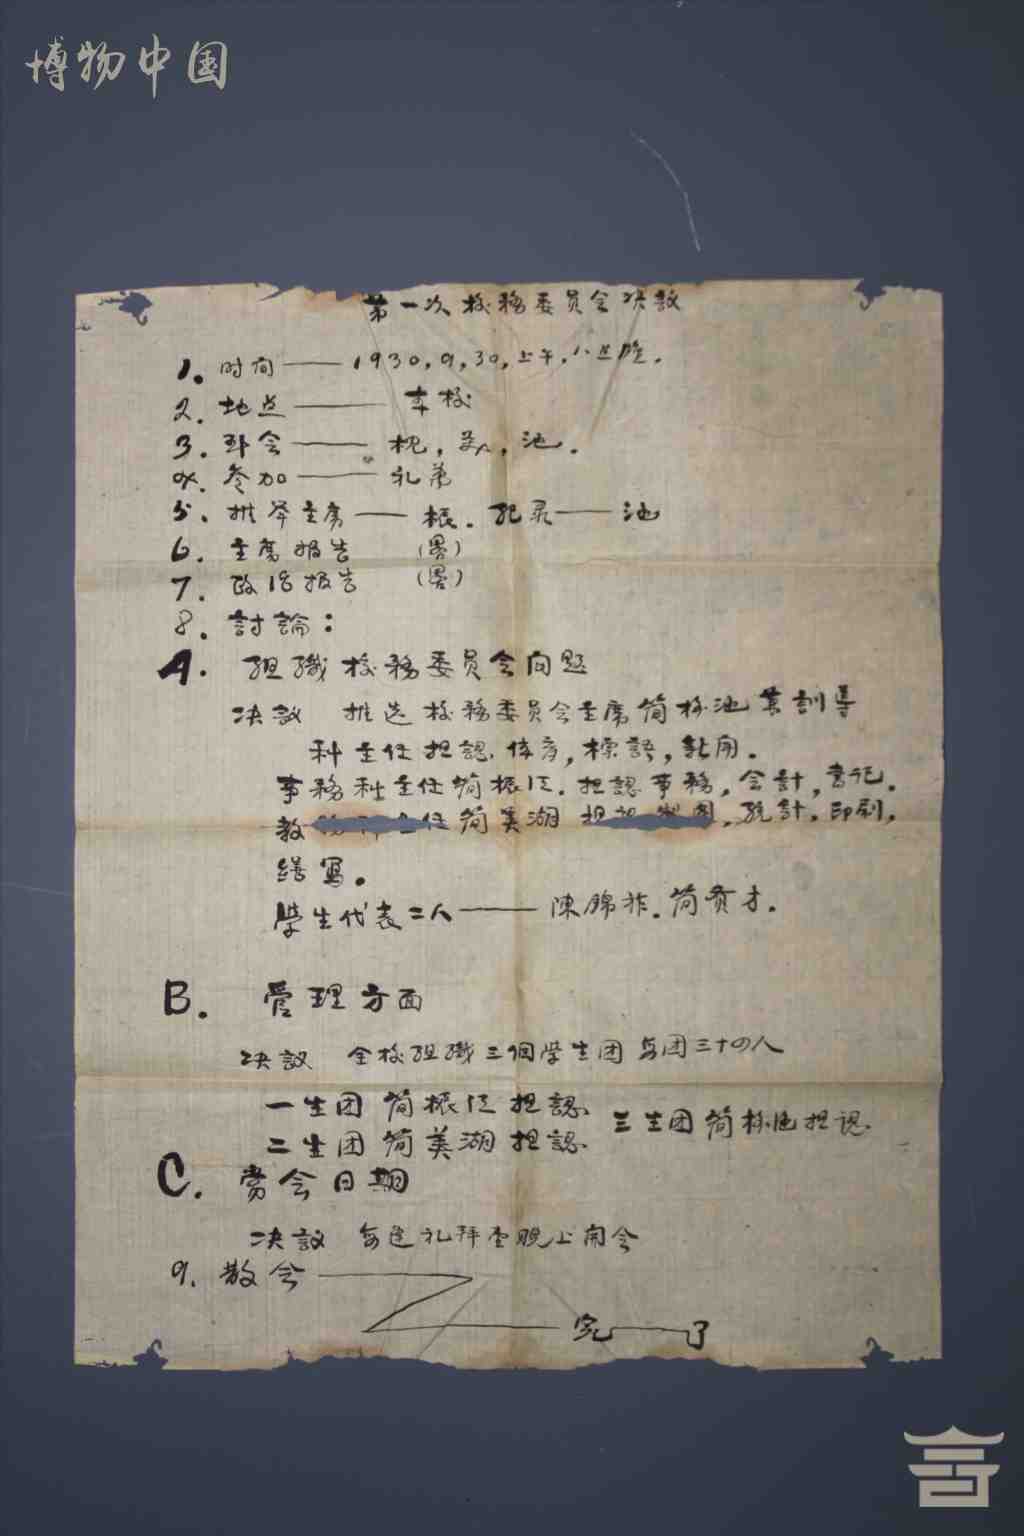 博物中国
第一次校務委員会决議
1. 时间——1930,9,30,上午,八点
2. 地点——本校
3. 到会——振,美,池.
4. 参加——礼弟
5. 推举主席——振. 記录——池
6. 主席报告 (畧)
7. 政治报告 (畧)
8. 討論:
A. 组織校務委員会问題
决議 推选校務委員会主席简 池 訓導
科主任担認 体育,標語,
事務科主任简振 . 担認事務,会計,書记.
教 主任简美湖 担 制图,統計,印刷,
繕寫.
學生代表二人——陳錦 . 简贵才.
B. 管理方面
决議 全校组織三個学生团 每团三十四人
一生团 简振 担認
三生团 简 担認
二生团 简美湖担認
C. 常会日期
决議 每 礼拜 晚上開会
9. 散会——完——了